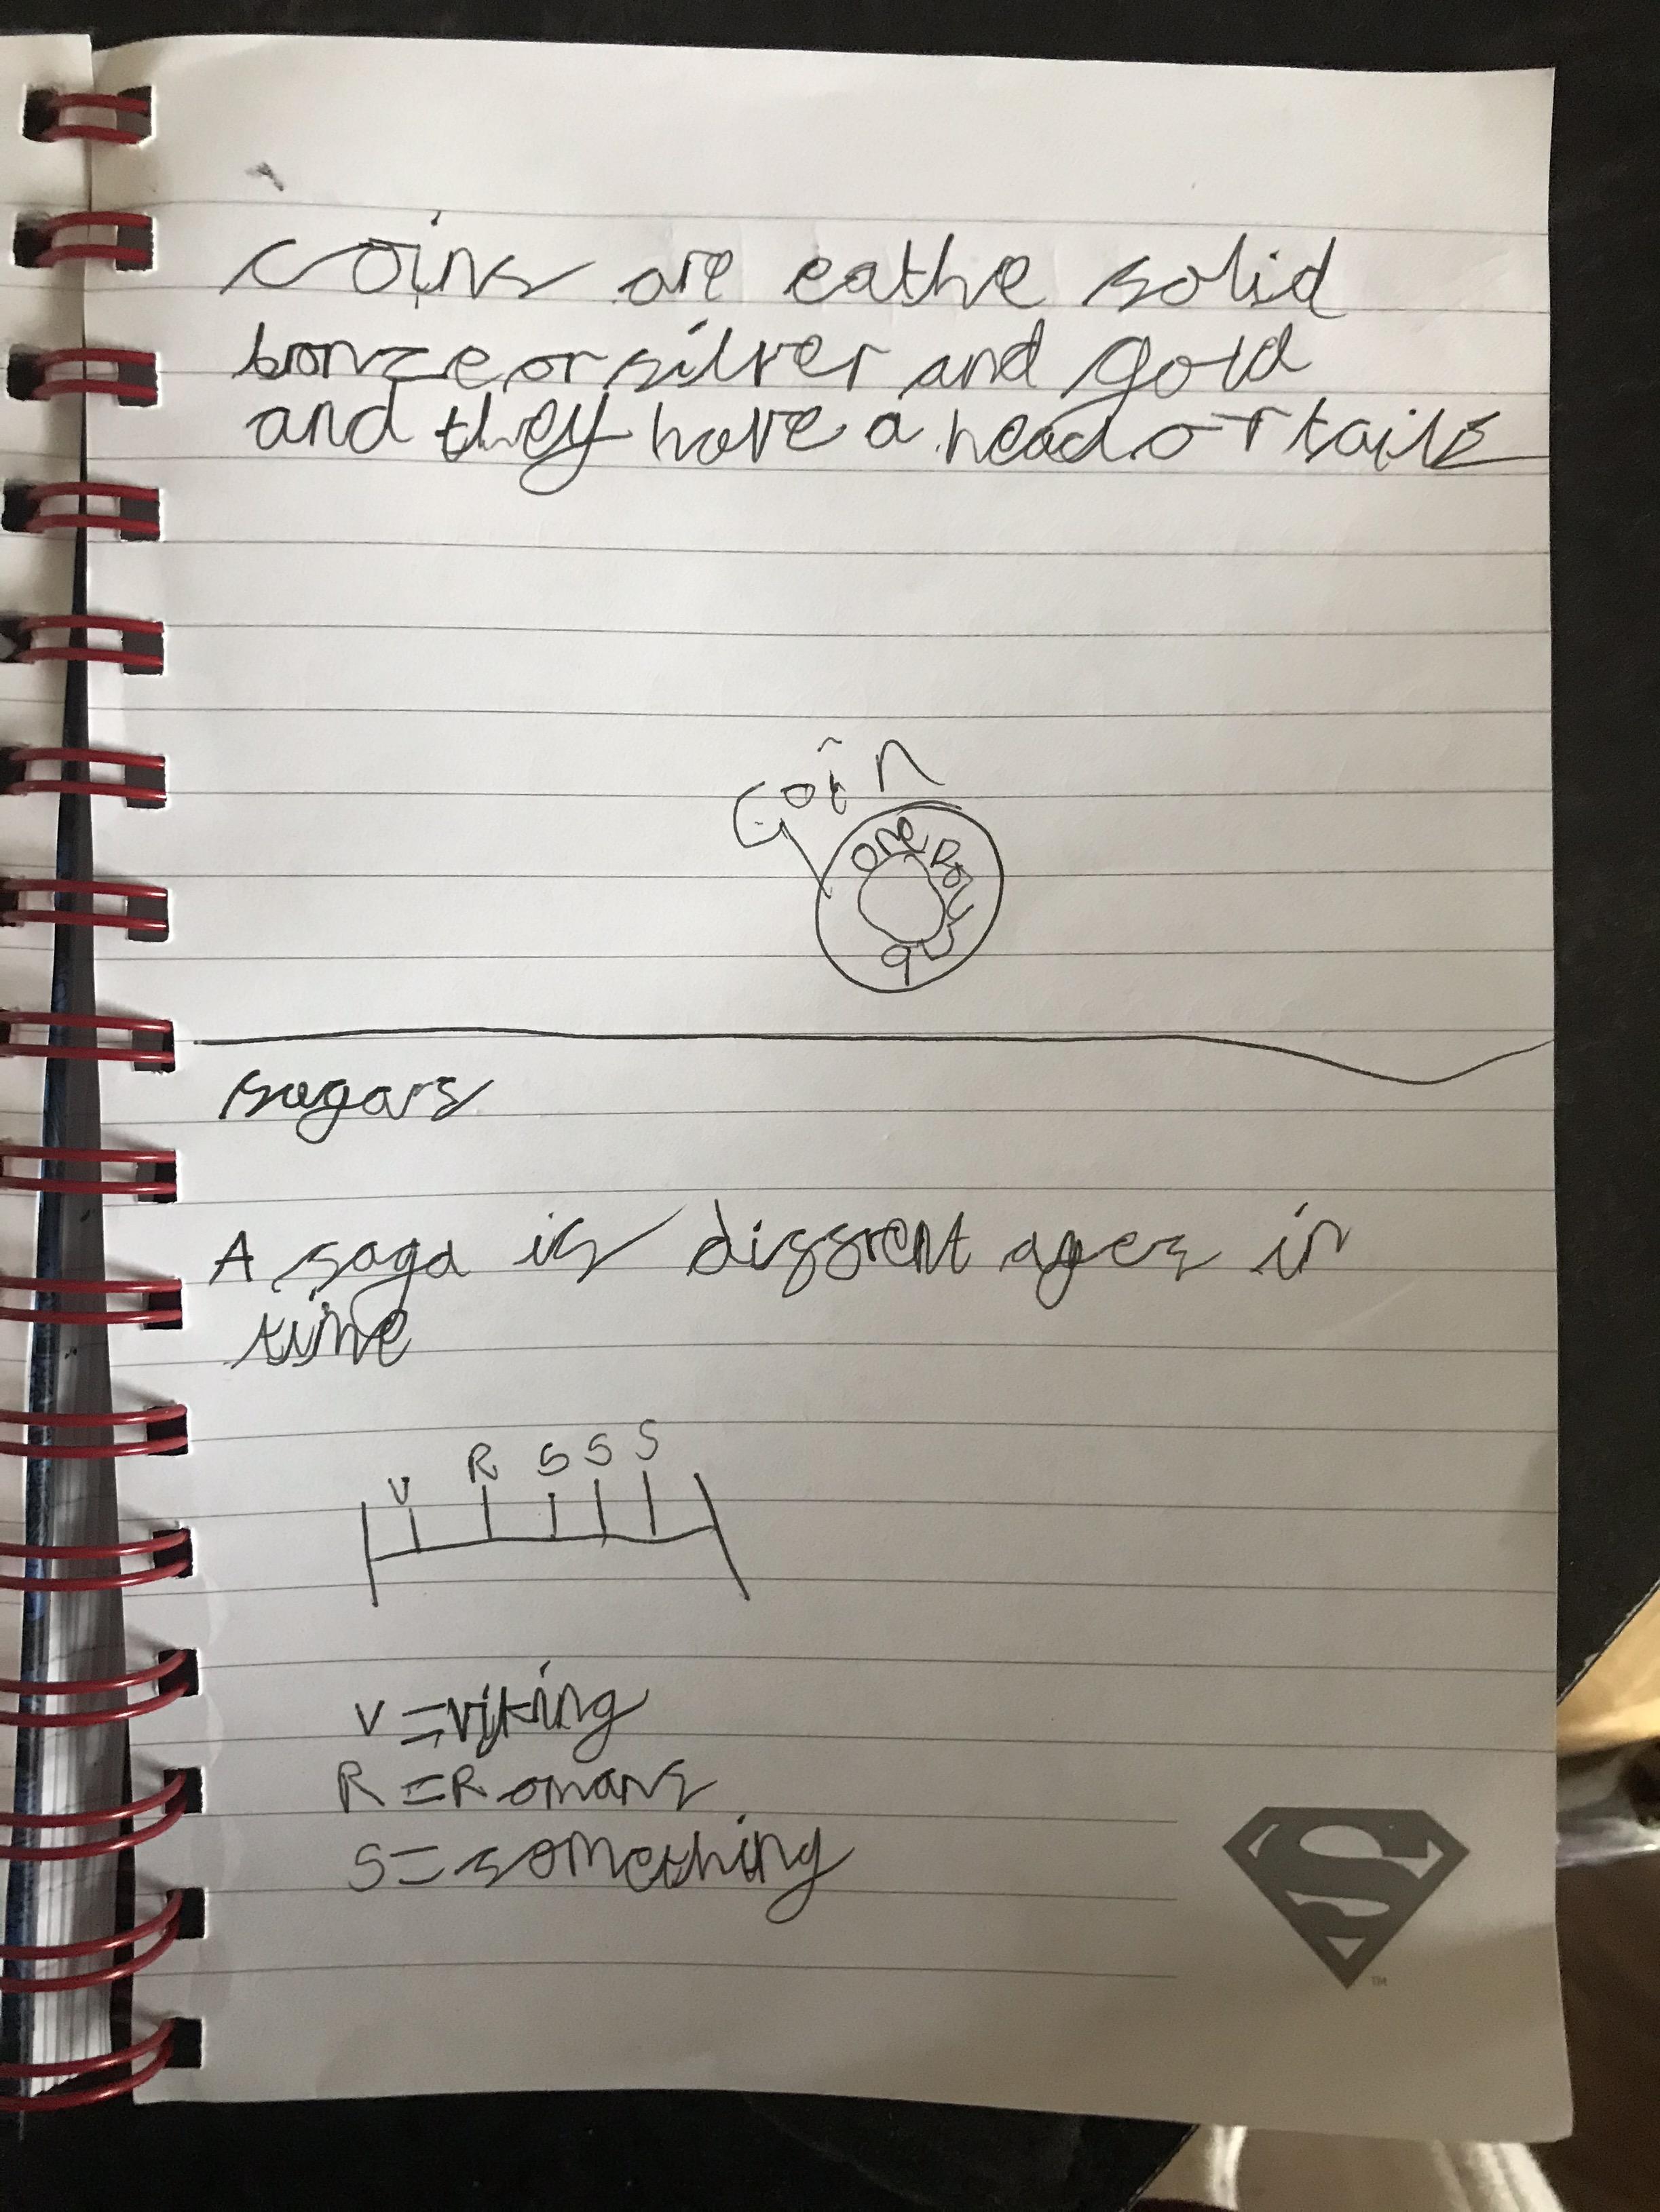 coins are eathe solid
bonze or silver and gold
and they have a head or tails
Coin
one Poun
sagars
A saga is diffrent ages in
time
V R S S S
V = viking
R = Romans
S = something
S
TM